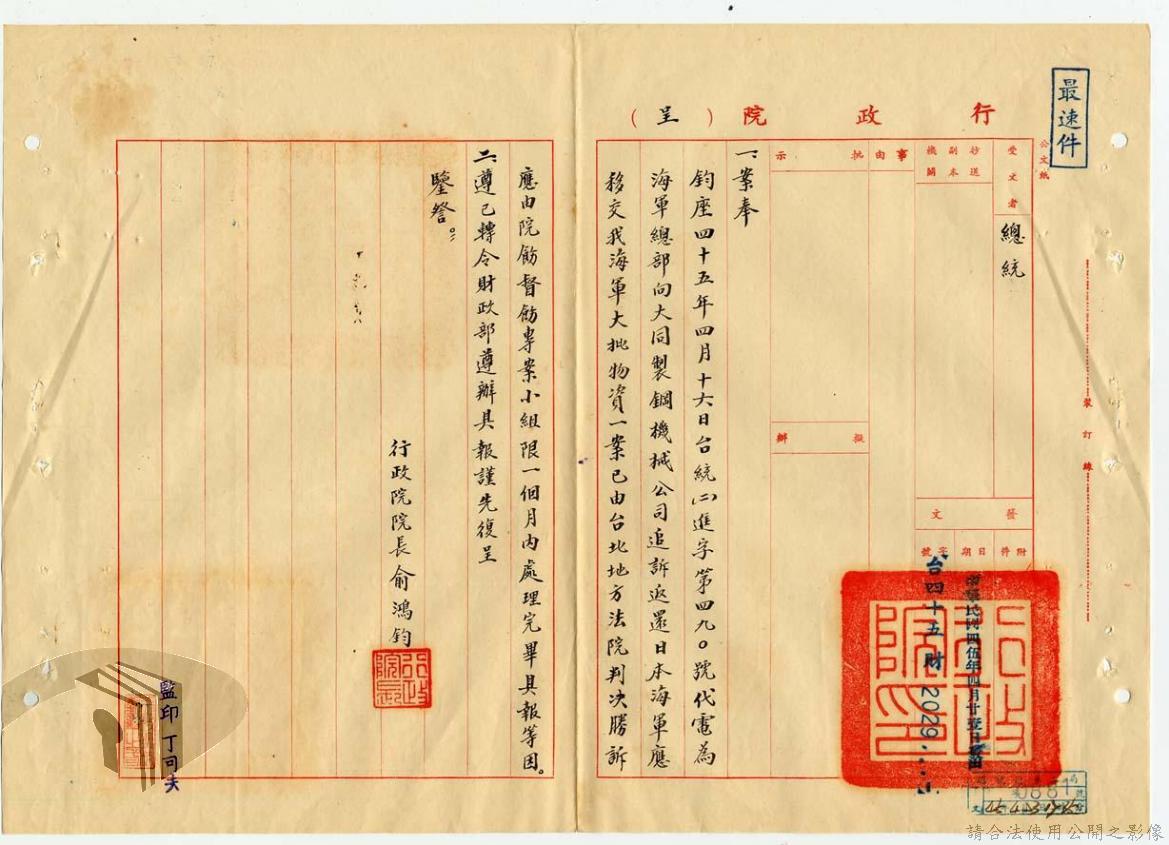 最速件
行政院（呈）
公文紙
裝訂線
受文者
總統
抄送副本機關
事由
批示
擬辦
發文
附件
日期
字號
中華民國四伍年四月廿壹日
台四十五財2029
行政院印
一、案奉
鈞座四十五年四月十六日台統㈡進字第四九〇號代電為
海軍總部向大同製鋼機械公司追訴返還日本海軍應
移交我海軍大批物資一案已由台北地方法院判決勝訴
應由院飭督飭專案小組限一個月內處理完畢具報等因。
二、遵已轉令財政部遵辦具報謹先復呈
鑒詧。
行政院院長俞鴻鈞
監印丁可夫
請合法使用公開之影像